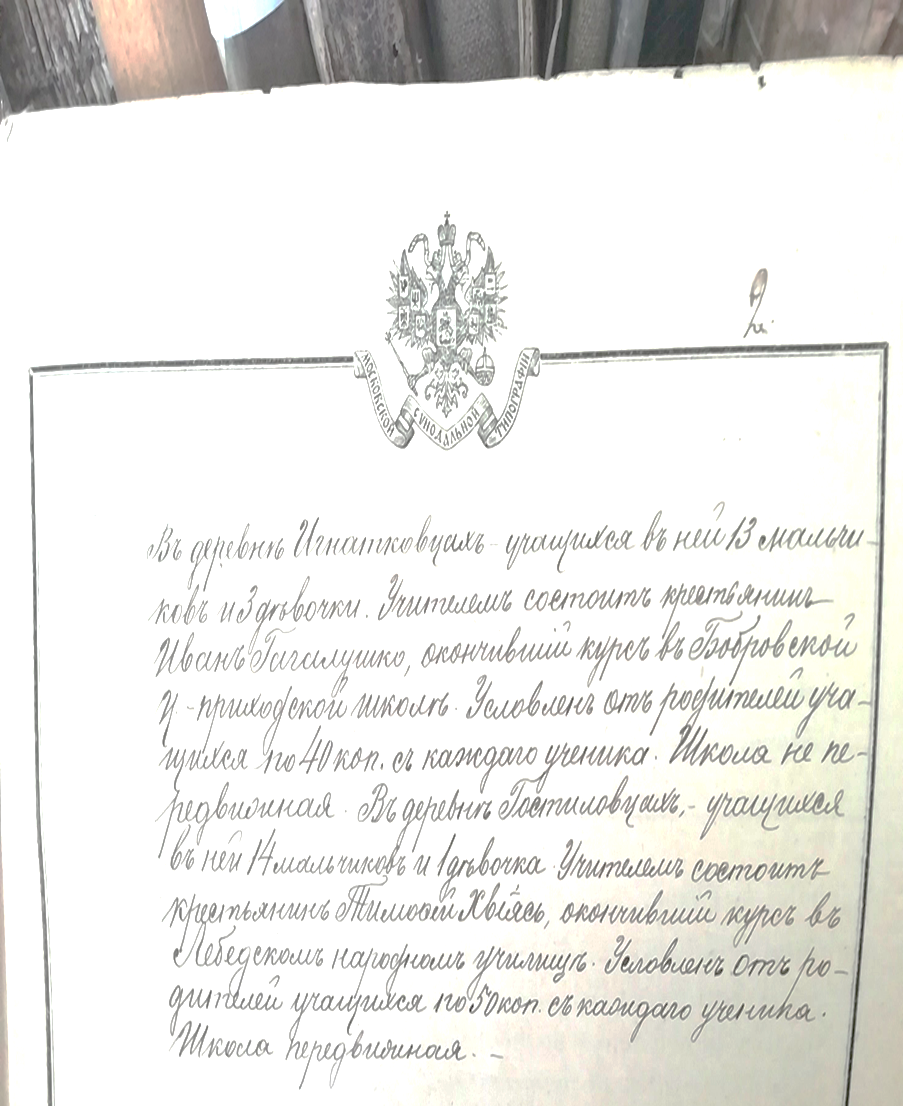 2
МОСКОВСКОЙ СѴНОДАЛЬНОЙ ТИПОГРАФІИ
Въ деревнѣ Игнатковцахъ - учащихся въ ней 13 мальчи-
ковъ и 3 дѣвочки. Учителемъ состоитъ крестьянинъ
Иванъ Гагалушко, окончившій курсъ въ Бобровской
ц.-приходской школѣ. Условленъ отъ родителей уча-
щихся по 40 коп. съ каждаго ученика. Школа не пе-
редвижная. Въ деревнѣ Гостиловцахъ, - учащихся
въ ней 14 мальчиковъ и 1 дѣвочка. Учителемъ состоитъ
крестьянинъ Тимоѳей Хвіясь, окончившій курсъ въ
Лебедскомъ народномъ училищѣ. Условленъ отъ ро-
дителей учащихся по 50 коп. съ каждаго ученика.
Школа передвижная. -